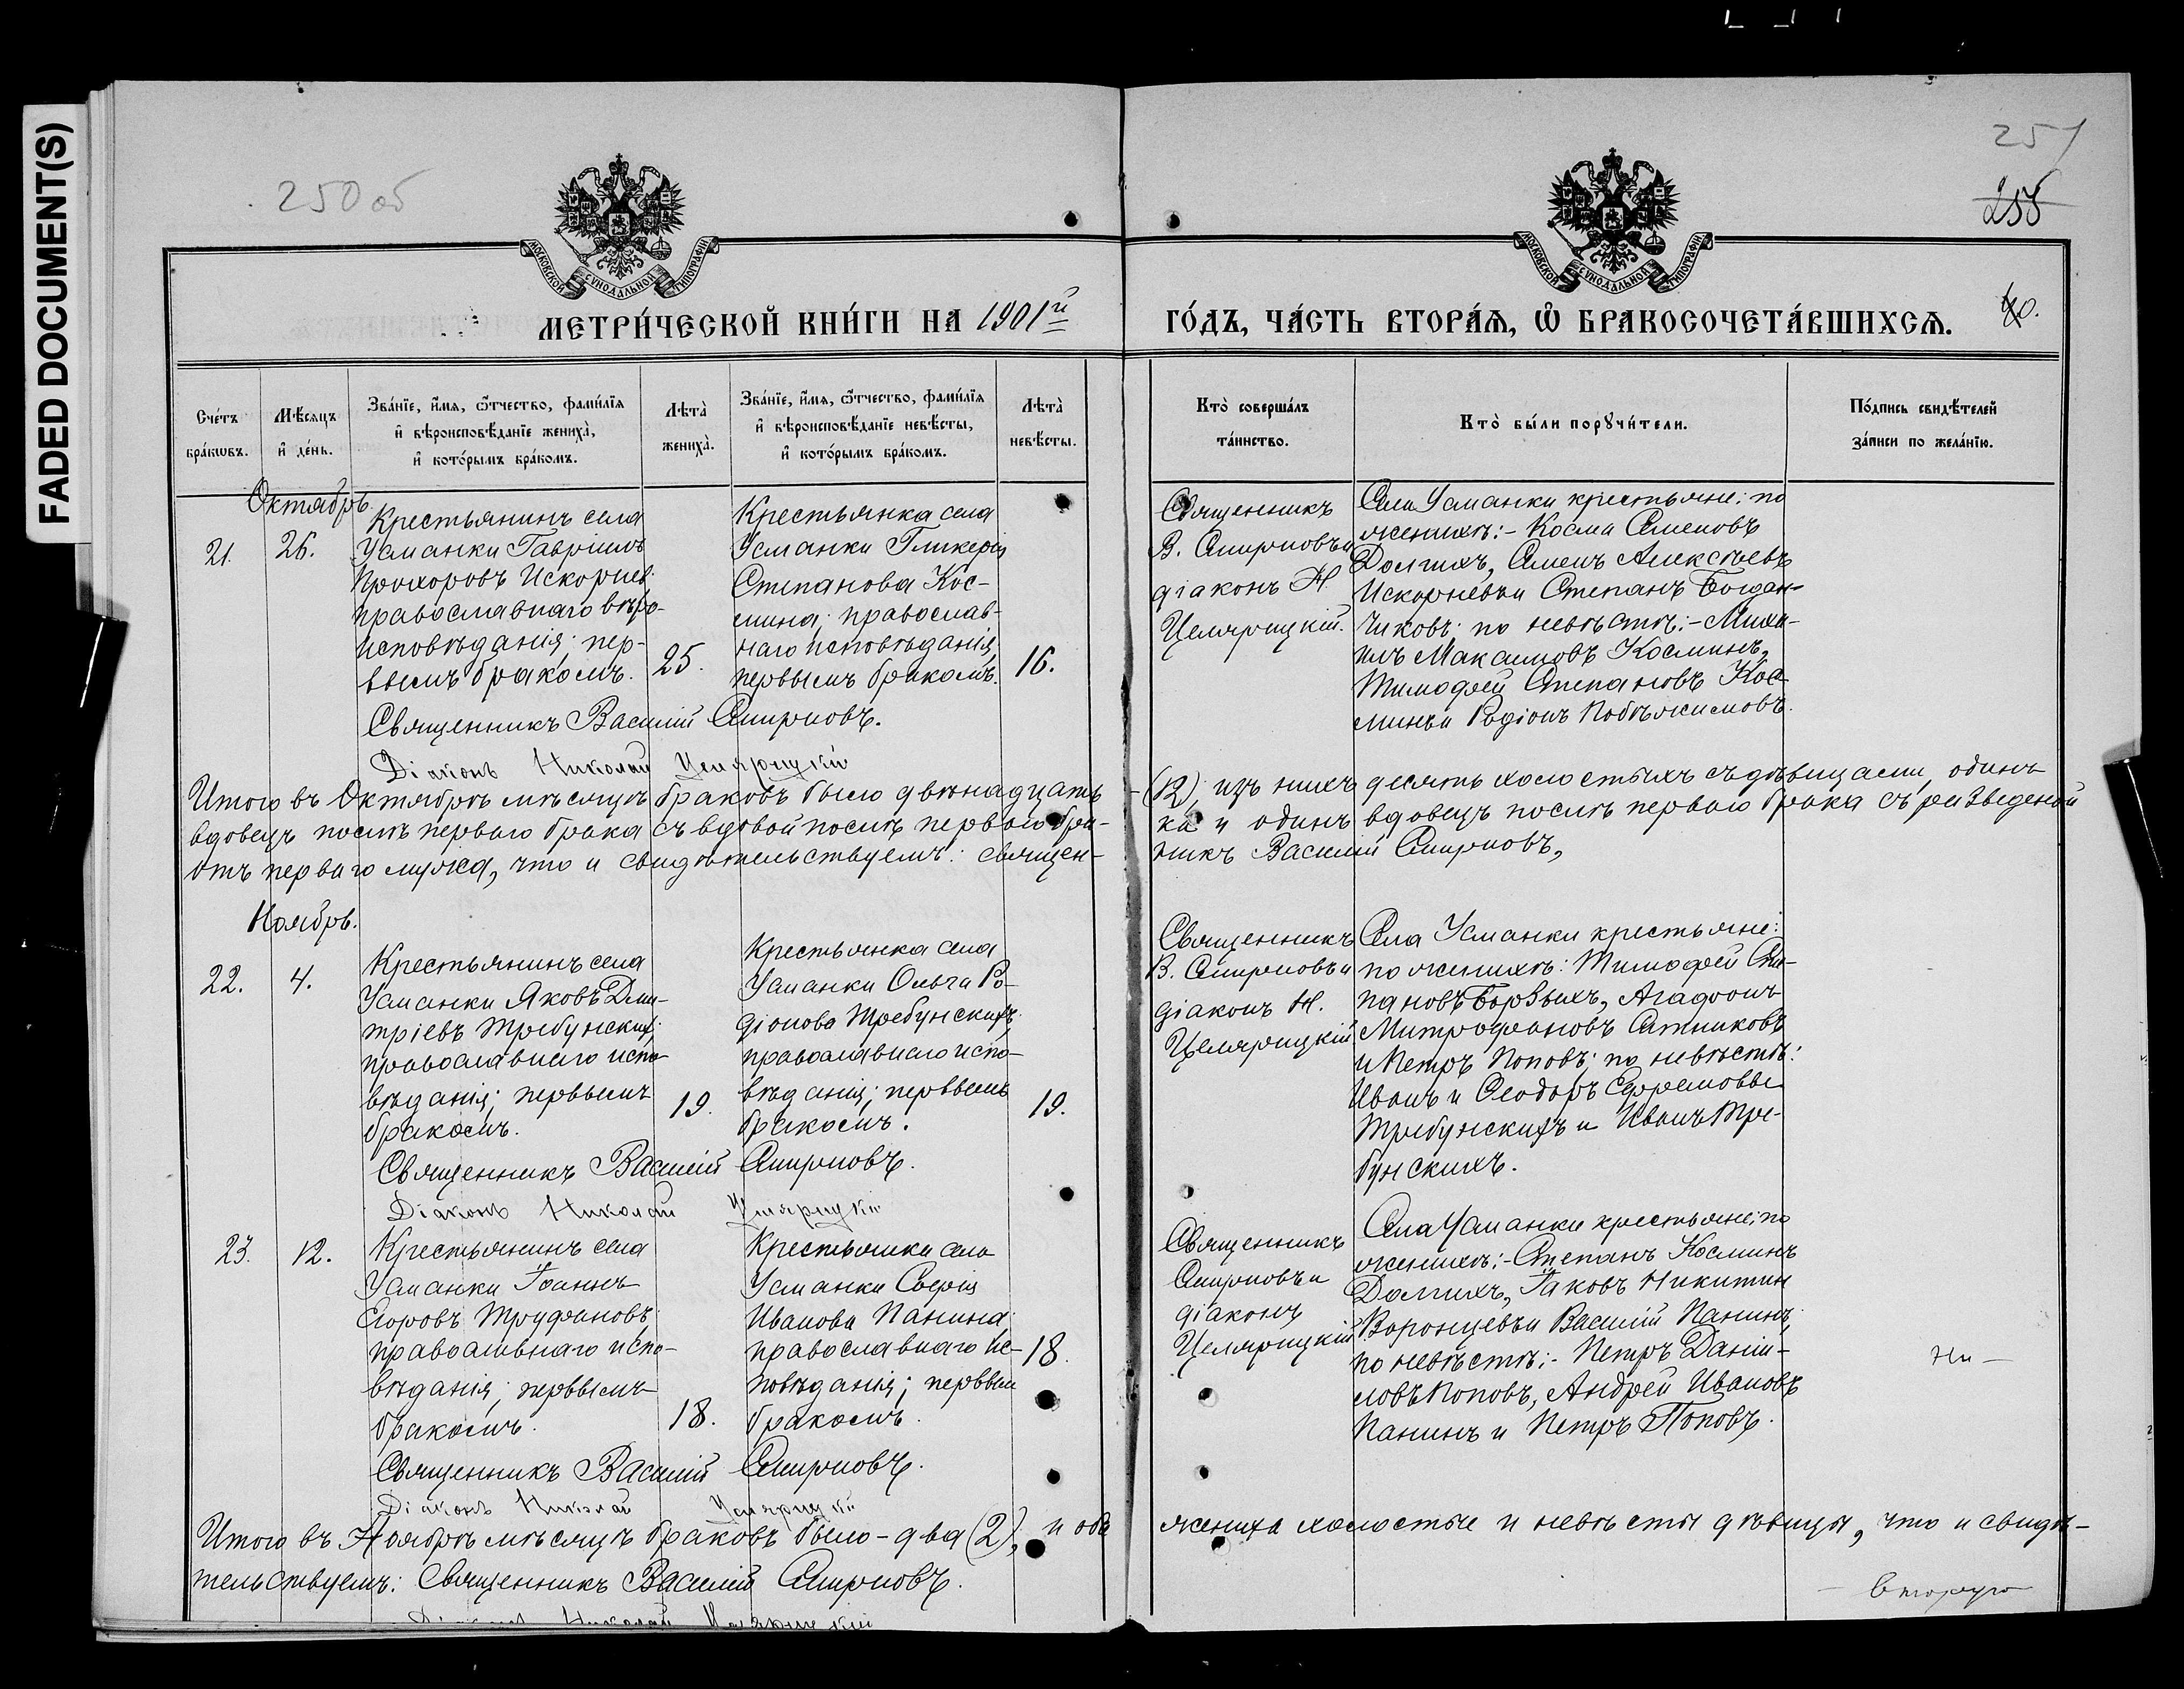 FADED DOCUMENT(S)
250 об
251
255
МОСКОВСКОЙ СѴНОДАЛЬНОЙ ТИПОГРАФІИ
МОСКОВСКОЙ СѴНОДАЛЬНОЙ ТИПОГРАФІИ
МЕТРИ́ЧЕСКОЙ КНИ́ГИ НА 1901й
ГО́ДЪ, ЧА́СТЬ ВТОРА́Ѧ, Ѽ БРАКОСОЧЕТА́ВШИХСѦ.
Сче́тъ
бра́кѡвъ.
Мѣ́сѧцъ
и҆ де́нь.
Зва́нїе, и҆́мѧ, ѻ҆́тчество, фами́лїѧ
и҆ вѣроисповѣ́данїе жениха̀,
и҆ кото́рымъ бра́комъ.
Лѣта̀
жениха̀.
Зва́нїе, и҆́мѧ, ѻ҆́тчество, фами́лїѧ
и҆ вѣроисповѣ́данїе невѣ́сты,
и҆ кото́рымъ бра́комъ.
Лѣта̀
невѣ́сты.
Кто̀ соверша́лъ
та́инство.
Кто̀ бы́ли порꙋчи́тели.
По́дпись свидѣ́телей
за́писи по жела́нїю.
Октябрь
21.
26.
Крестьянинъ села
Усманки Гавріилъ
Прохоровъ Искорнев
православнаго вѣро-
исповѣданія; пер-
вымъ бракомъ.
25.
Крестьянка села
Усманки Гликерія
Степанова Кос-
мина; православ-
наго исповѣданія,
первымъ бракомъ.
16.
Священникъ
В. Смирновъ и
діаконъ Н
Целярицкій.
Села Усманки крестьяне: по
женихѣ: - Косма Семеновъ
Долгихъ, Семенъ Алексѣевъ
Искорневъ и Степанъ Богдан-
чиковъ; по невѣстѣ: - Миха-
илъ Максимовъ Косминъ,
Тимофей Степановъ Кос-
минъ и Родіонъ Побѣжимовъ.
Священникъ Василій Смирновъ.
Діаконъ Николай Целярицкій
Итого въ Октябрѣ мѣсяцѣ браковъ было двѣнадцать
-(12), изъ нихъ десять холостыхъ съ дѣвицами, одинъ
вдовецъ послѣ перваго брака съ вдовой послѣ перваго бра-
ка и одинъ вдовецъ послѣ перваго брака съ разведеной
отъ перваго мужа, что и свидѣтельствуемъ: священ-
никъ Василій Смирновъ,
Ноябрь.
22.
4.
Крестьянинъ села
Усманки Яковъ Дми-
тріевъ Требунскихъ;
православнаго испо-
вѣданія; первымъ
бракомъ.
19.
Крестьянка села
Усманки Ольга Ро-
діонова Требунскихъ;
православнаго испо-
вѣданія; первымъ
бракомъ.
19.
Священникъ
В. Смирновъ и
діаконъ Н.
Целярицкій
Села Усманки крестьяне:
по женихѣ: Тимофей Сте-
пановъ Борзыхъ, Агафонъ
Митрофановъ Ситниковъ
и Петръ Поповъ; по невѣстѣ:
Иванъ и Ѳеодоръ Ефремовы
Требунскихъ и Иванъ Тре-
бунскихъ.
Священникъ Василій Смирновъ.
Діаконъ Николай Целярицкій
23.
12.
Крестьянинъ села
Усманки Іоаннъ
Егоровъ Труфановъ;
православнаго испо-
вѣданія; первымъ
бракомъ.
18.
Крестьянка села
Усманки
Иванова Панина;
православнаго ис-
повѣданія; первым
бракомъ.
18.
Священникъ
Смирновъ и
діаконъ
Целярицкій
Села Усманки крестьяне; по
женихѣ: - Степанъ Косминъ
Долгихъ, Іаковъ Никитин
Воронцевъ и Василій Панинъ;
по невѣстѣ: - Петръ Даніи-
ловъ Поповъ, Андрей Ивановъ
Панинъ и Петръ Поповъ.
Священникъ Василій Смирновъ.
Діаконъ Николай Целярицкій
Итого въ Ноябрѣ мѣсяцѣ браковъ было - два (2), и оба
жениха холостые и невѣсты дѣвицы, что и свидѣ-
тельствуемъ: Священникъ Василій Смирновъ.
Діаконъ Николай Целярицкій